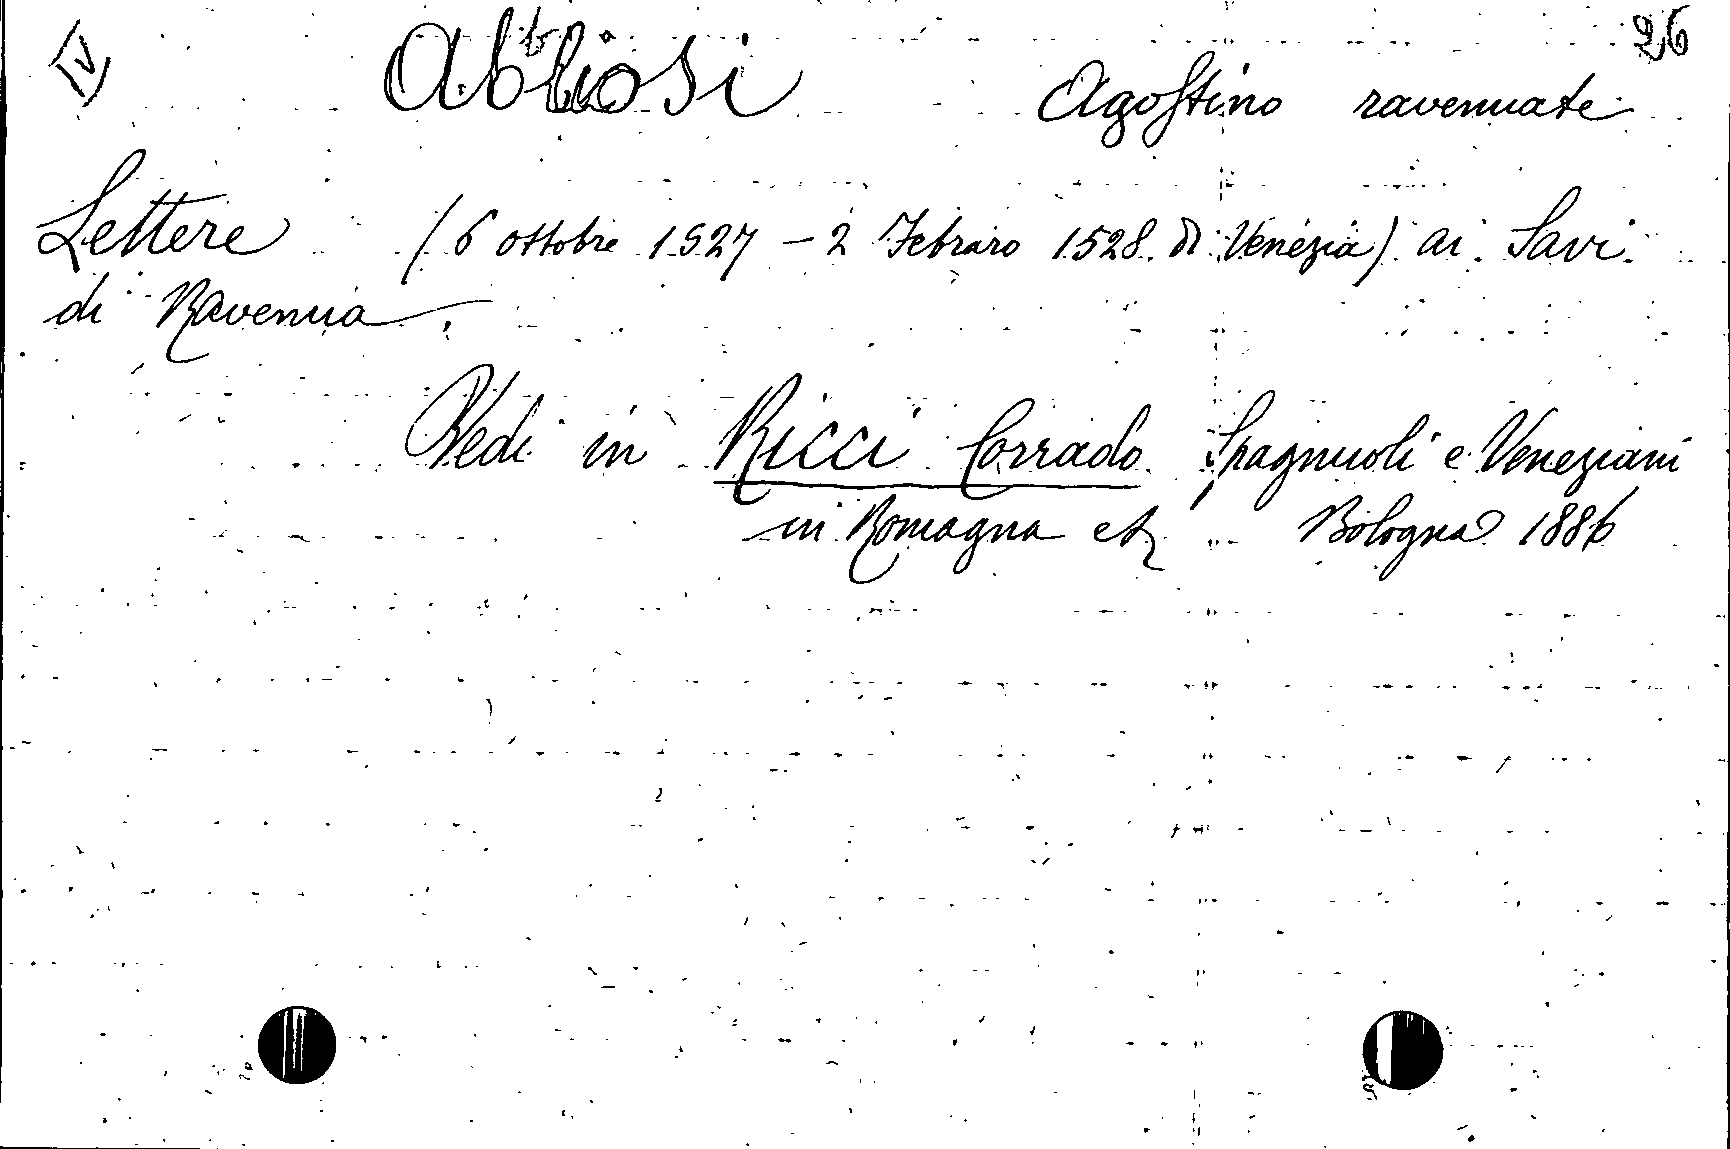 IV Abbiosi Agostino ravennate 26
Lettere (6 ottobre 1527 - 2 Febraro 1528 di Venezia) ai Savi
di Ravenna.
Vedi in Ricci Corrado Spagnuoli e Veneziani
in Romagna etc Bologna 1886